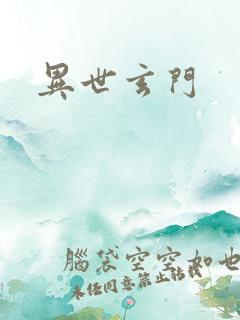 異世玄門
腦袋空空如也
未经同意禁止转载